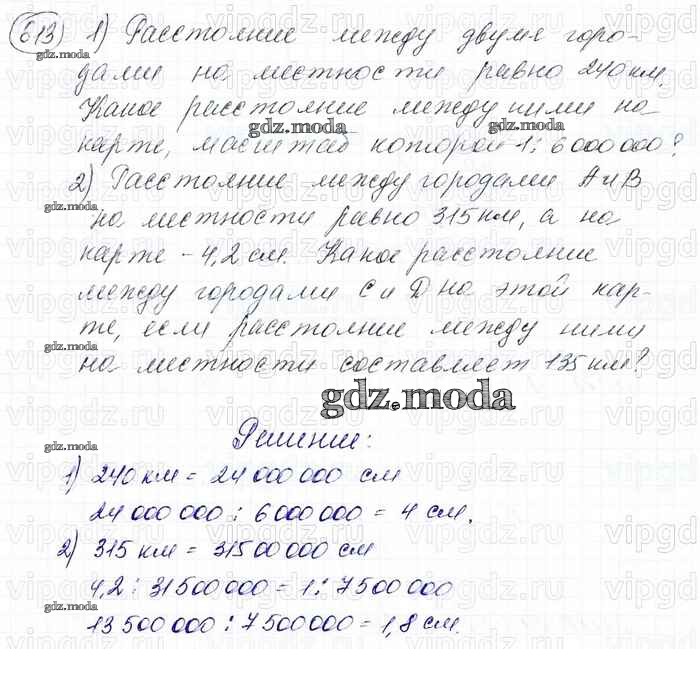 613) 1) Расстояние между двумя горо-
дами на местности равно 240 км.
Какое расстояние между ними на
карте, масштаб которой 1:6000000?
2) Расстояние между городами А и В
на местности равно 315 км, а на
карте - 4,2 см. Какое расстояние
между городами С и D на этой кар-
те, если расстояние между ними
на местности составляет 135 км?
gdz.moda
Решение:
1) 240 км = 24 000 000 см
24 000 000 : 6 000 000 = 4 см.
2) 315 км = 31500000 см
4,2 : 31500 000 = 1 : 7500 000
13 500 000 : 7 500 000 = 1,8 см.